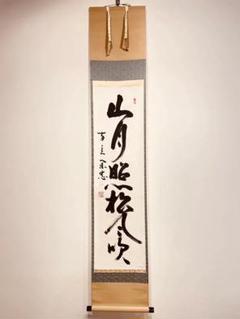 山月照松風吹